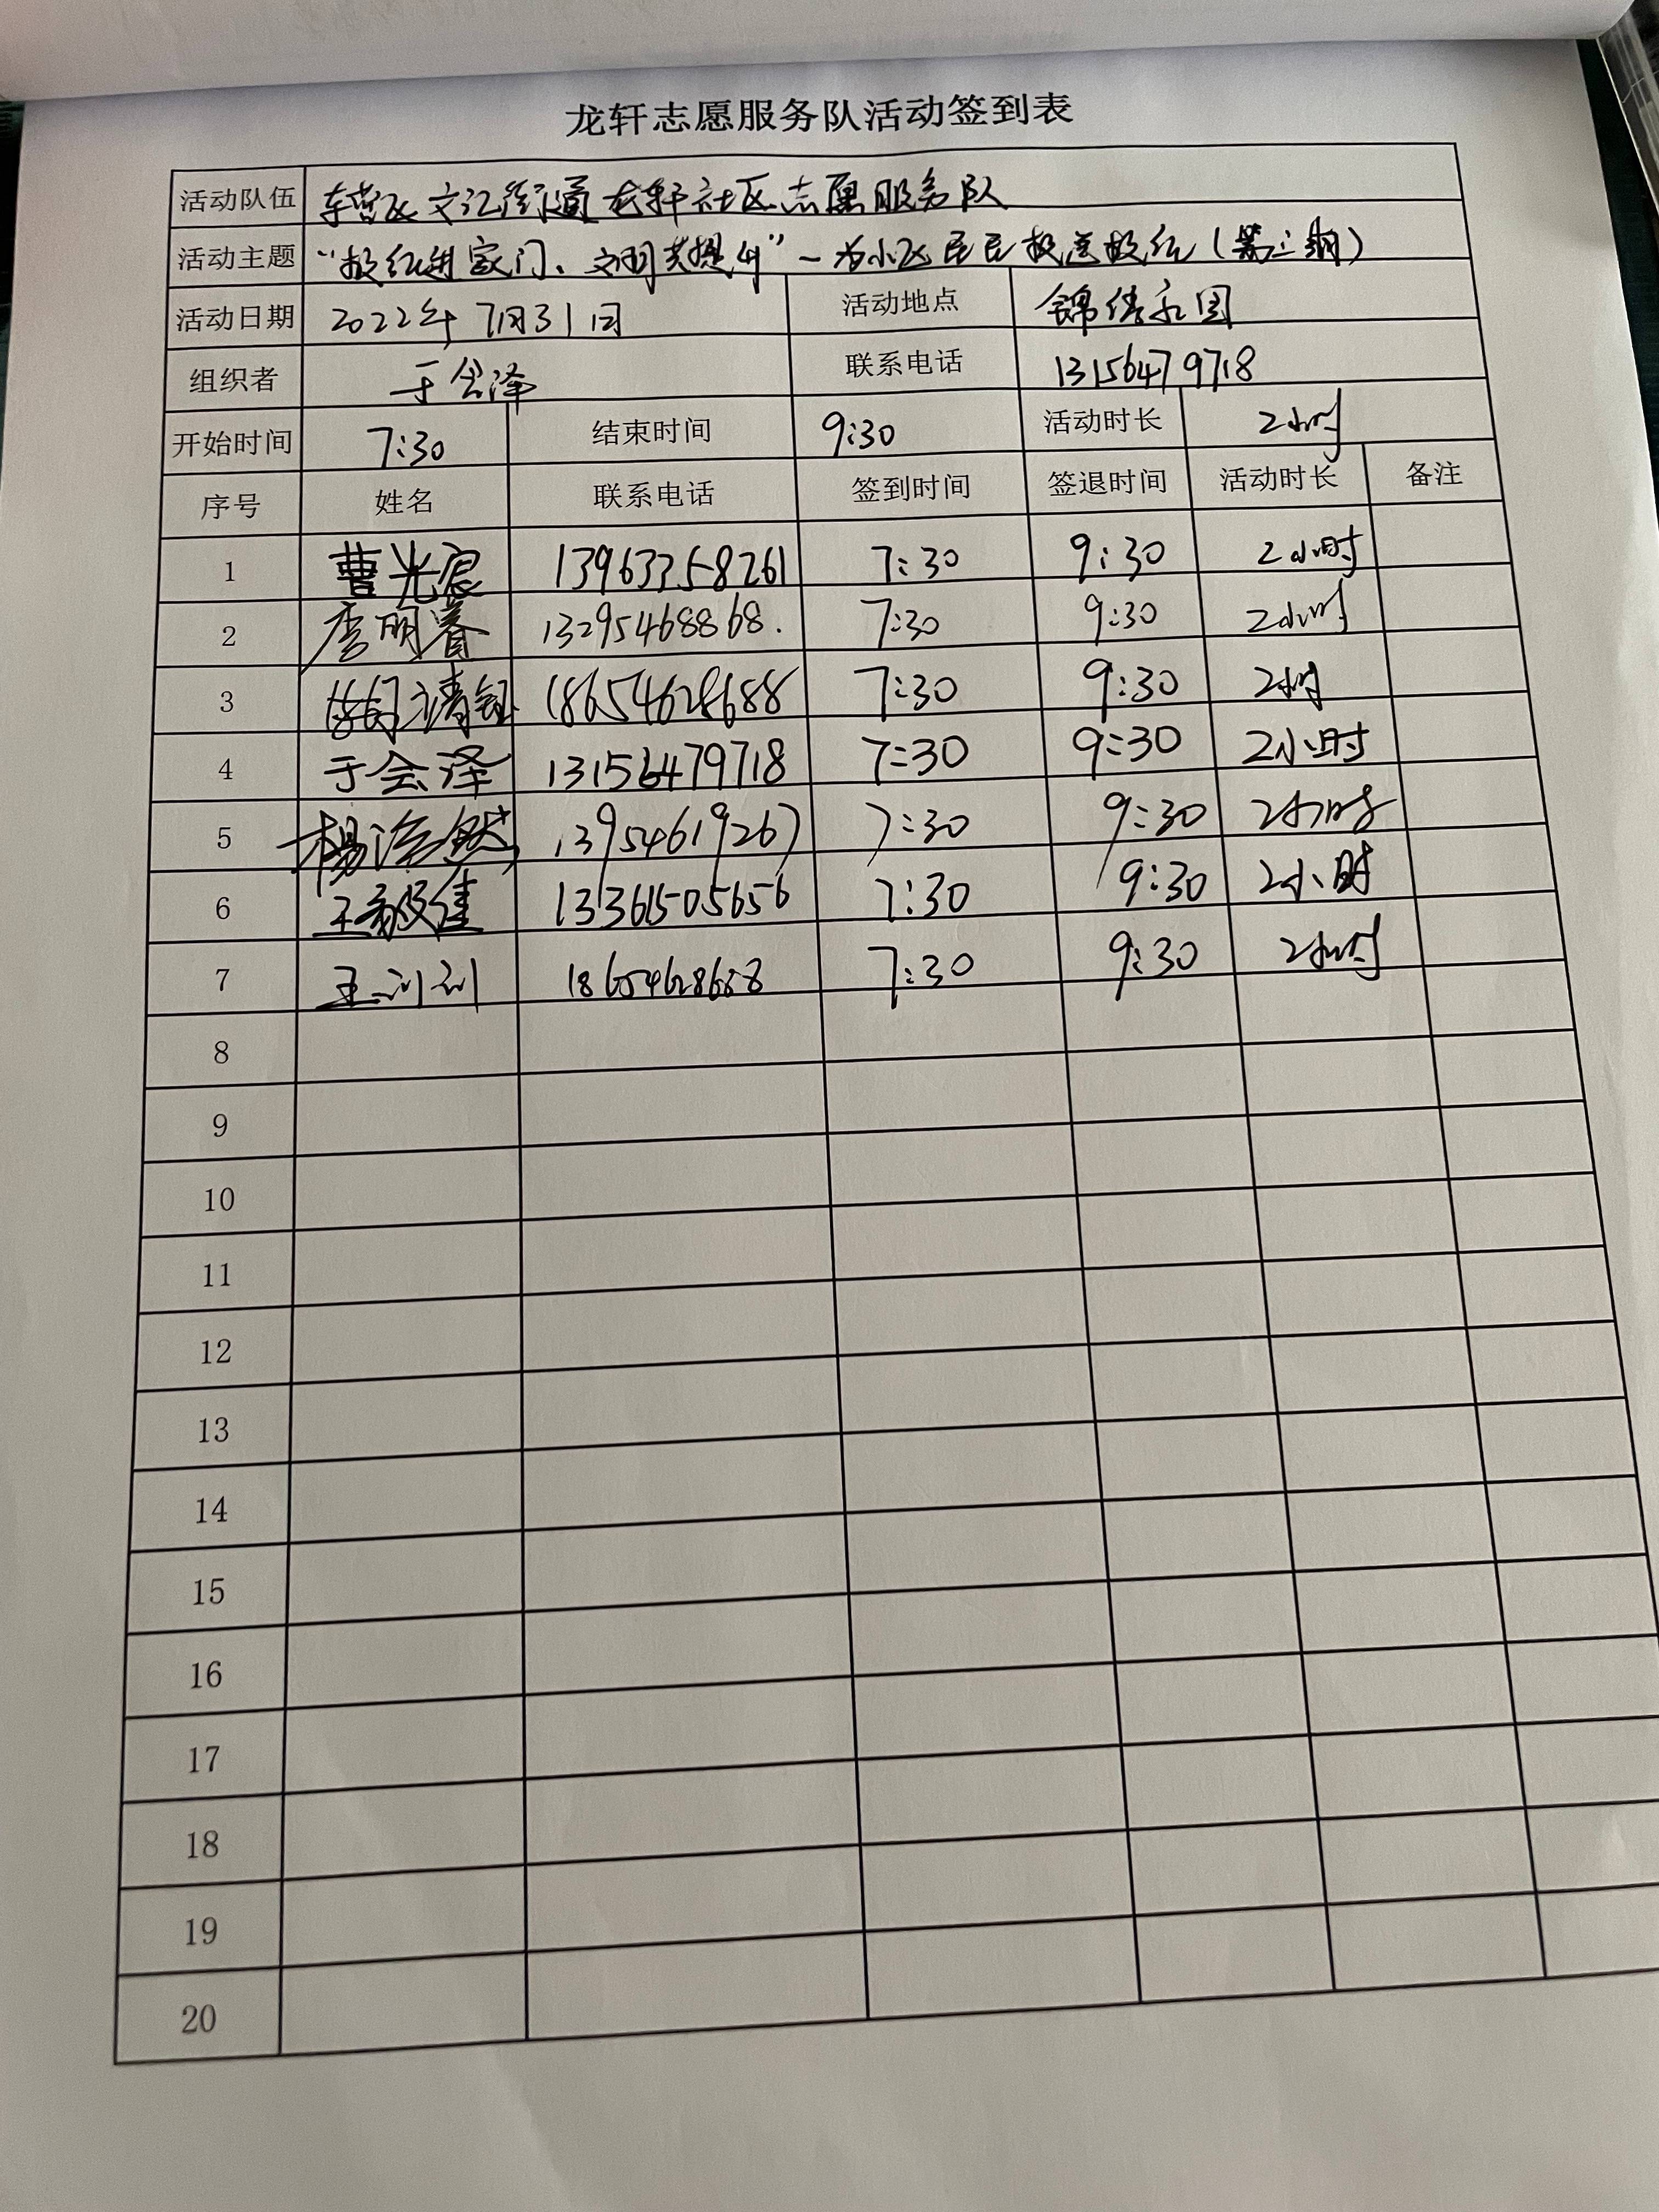 龙轩志愿服务队活动签到表
活动队伍 东营区文汇街道龙轩社区志愿服务队
活动主题 “报纸进家门、文明共提升”—为小区居民投送报纸(第三期)
活动日期 2022年7月31日 活动地点 锦绣
组织者 于会泽 联系电话 13156479718
开始时间 7:30 结束时间 9:30 活动时长 2小时
序号 姓名 联系电话 签到时间 签退时间 活动时长 备注
1 曹光宸 13963358261 7:30 9:30 2小时
2 李明睿 13295468868. 7:30 9:30 2小时
3 18654628688 7:30 9:30 2小时
4 于会泽 13156479718 7:30 9:30 2小时
5 杨浩然 13954619267 7:30 9:30 2小时
6 王毅佳 13361505656 7:30 9:30 2小时
7 王 18654628688 7:30 9:30 2小时
8
9
10
11
12
13
14
15
16
17
18
19
20